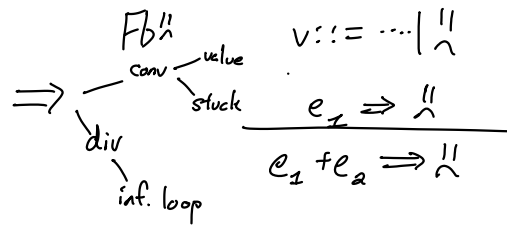 Fb☹
v::= ····| ☹
conv
value
stuck
⇒
div
inf. loop
e₁ ⇒ ☹
e₁ + e₂ ⇒ ☹